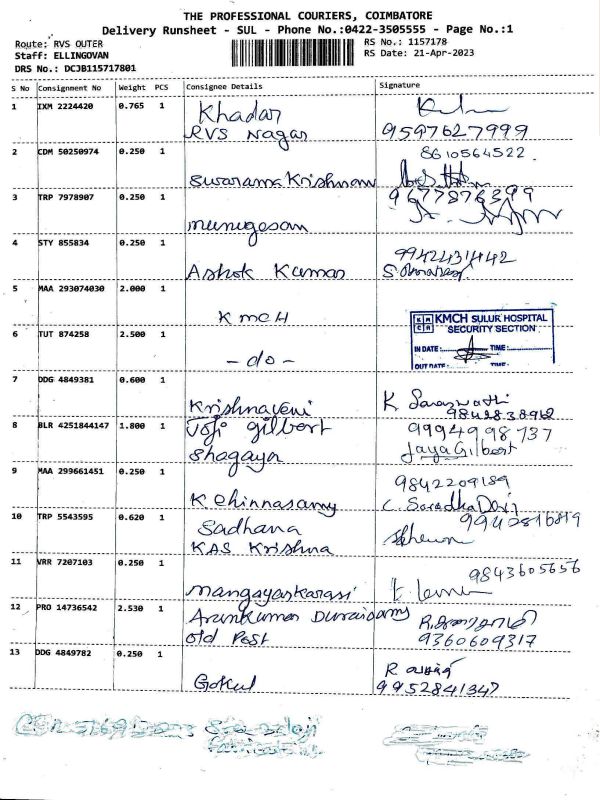 THE PROFESSIONAL COURIERS, COIMBATORE
Delivery Runsheet - SUL - Phone No.:0422-3505555 - Page No.:1
Route: RVS OUTER
RS No.: 1157178
Staff: ELLINGOVAN
RS Date: 21-Apr-2023
DRS No.: DCJB115717801
S No Consignment No Weight PCS Consignee Details Signature
1 IXM 2224420 0.765 1 Khadar
RVS Nagar 9597627999
2 CDM 50250974 0.250 1 8610564522
Swarama Krishnan
3 TRP 7978907 0.250 1 9677876399
murugesan
4 STY 855834 0.250 1
Ashok Kumar
5 MAA 293074030 2.000 1
KMCH
KMCH SULUR HOSPITAL
SECURITY SECTION
IN DATE: TIME:
OUT DATE: TIME:
6 TUT 874258 2.500 1
- do -
7 DDG 4849381 0.600 1
Krishnaveni K Saraswathi
9842838962
8 BLR 4251844147 1.800 1 Joji gilbert 9994998737
Shagaya Jaya Gilbert
9 MAA 299661451 0.250 1 9842209189
K Chinnasamy C. Saradha Devi
10 TRP 5543595 0.620 1 Sadhana 9940816819
KAS Krishna
11 VRR 7207103 0.250 1 9843605656
mangayaskarasi
12 PRO 14736542 2.530 1 Arunkumar Duraisamy
old Post 9360609317
13 DDG 4849782 0.250 1
Gokul 9952841347